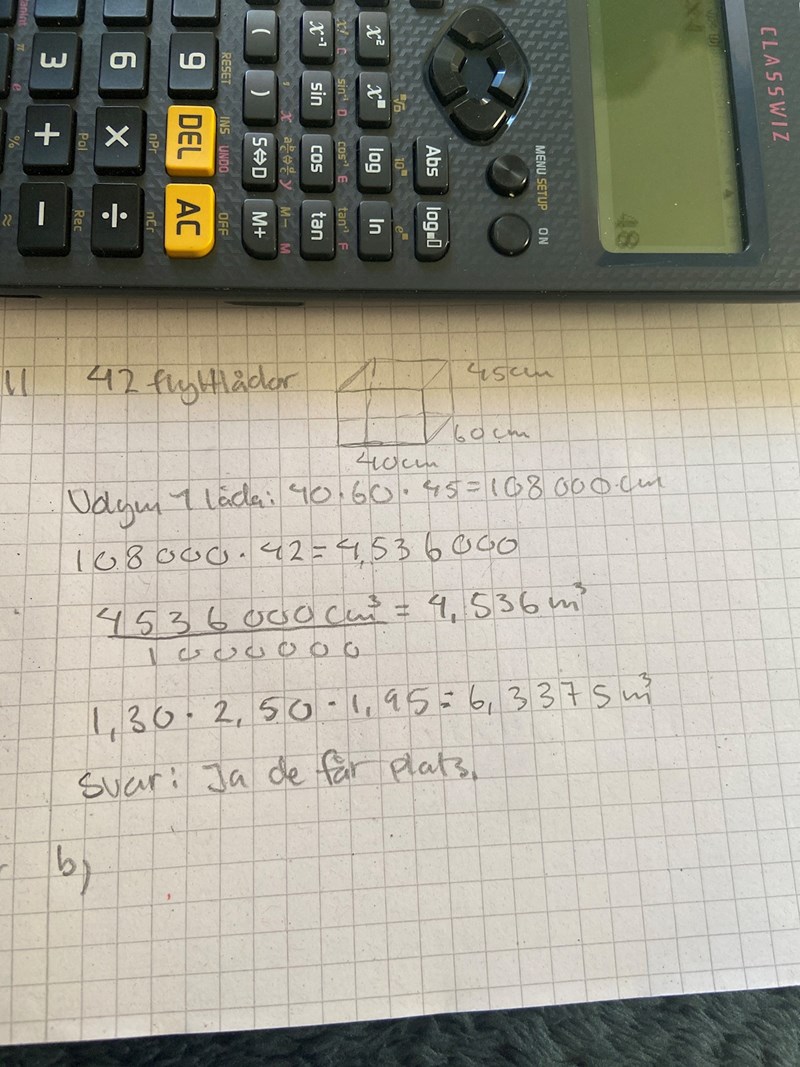 CLASSWIZ
48
MENU SETUP ON
Abs log
x² x log ln
x⁻¹ sin cos tan
sin⁻¹ D cos⁻¹ E tan⁻¹ F
( ) S⇔D M+
RESET INS UNDO OFF
9 DEL AC
nPr nCr
6 × ÷
Pol Rec
3 + −
11 42 flyttlådor
45cm
60cm
40cm
Volym 1 låda: 40·60·45=108 000 cm
108 000·42=4,536 000
4536 000 cm³ = 4,536 m³
1000000
1,30·2,50·1,95=6,3375 m³
Svar: Ja de får plats.
b)